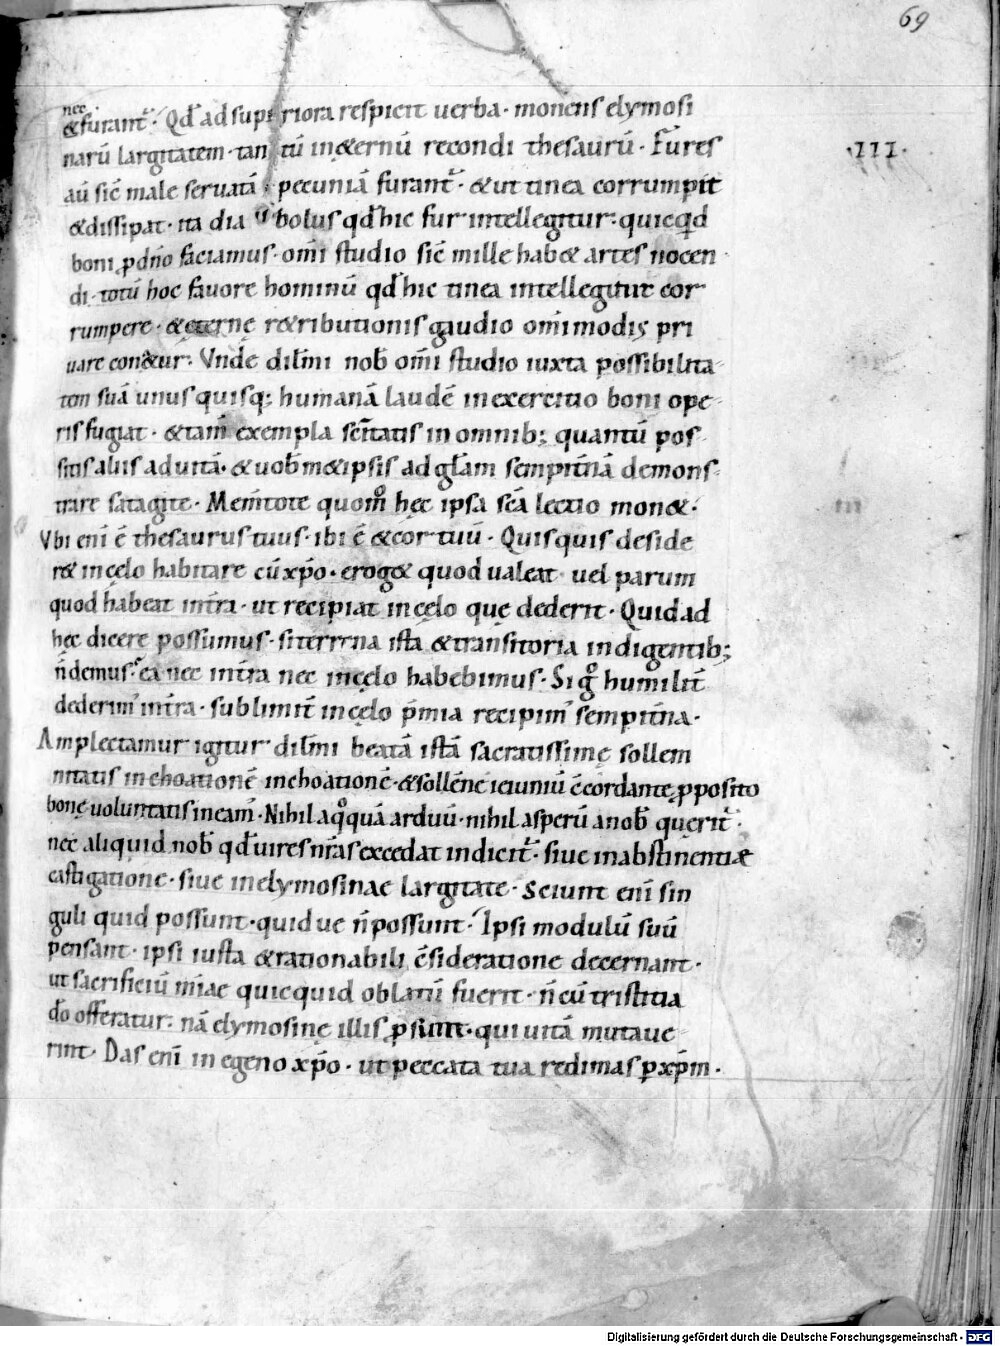 69
nec
&furant᷑. Qđ ad superiora respicit uerba. monens elymosi
narū largitatem. tantū in&ernū recondi thesaurū. Fures
.III.
aū sic̄ male seruatā pecuniā furant᷑. &ut tinea corrumpit
&dissipat. ita diabolus qđ hic fur intellegitur: quicqd
boni ꝓ dn̄o faciamus. om̄i studio sic̄ mille hab& artes nocen
di. totū hoc fauore hominū qđ hic tinea intellegitur cor
rumpere. &ęternę r&ributionis gaudio om̄imodis pri
uare con&ur. Unde dilm̄i nob̄ om̄i studio iuxta possibilita
tem suā unus quisq; humanā laudē in exercitio boni ope
ris fugiat. &tam̄ exempla sc̄itatis in omnib; quantū pos
sitis aliis ad uitā. &uob̄ m&ipsis ad gl̄am sempit̄nā demons
trare satagite. Mem̄tote quom̊ hęc ipsa sc̄a lectio mon&.
Ubi eni ē thesaurus tuus. ibi ē &cor tuū. Quisquis deside
r& in cęlo habitare cū xp̄o. erog& quod ualeat uel parum
quod habeat int̄ra. ut recipiat in cęlo quę dederit. Quid ad
hęc dicere possumus. si terrena ista &transitoria indigentib;
n̄ demus. ea nec int̄ra nec in cęlo habebimus. Si g̊ humilit̄
dederim᾽ int̄ra. sublimit̄ in cęlo p̄mia recipim᾽ sempit̄na.
Amplectamur igitur dilm̄i beatā istā sacratissimę sollem
nitatis inchoationē inchoationē. &sollēne ieiuniū c̄cordante ꝓposito
bonę uoluntatis ineam᾽. Nihil aq̊quā arduū. nihil asperū a nob̄ querit᷑.
nec aliquid nob̄ qđ uires nr̄as excedat indicit᷑. siue in abstinentiæ
castigatione. siue in elymosinae largitate. Sciunt eni sin
guli quid possunt. quid ue n̄ possunt. Ipsi modulū suū
pensant. ipsi iusta &rationabili c̄sideratione decernant.
ut sacrificiū mīae quicquid oblatū fuerit. n̄ cū tristitia
dō offeratur: nā elymosinę illis ꝓsunt. qui uitā mutaue
rint. Das eni in egeno xp̄o. ut peccata tua redimas ꝑ xp̄m.
Digitalisierung gefördert durch die Deutsche Forschungsgemeinschaft - DFG